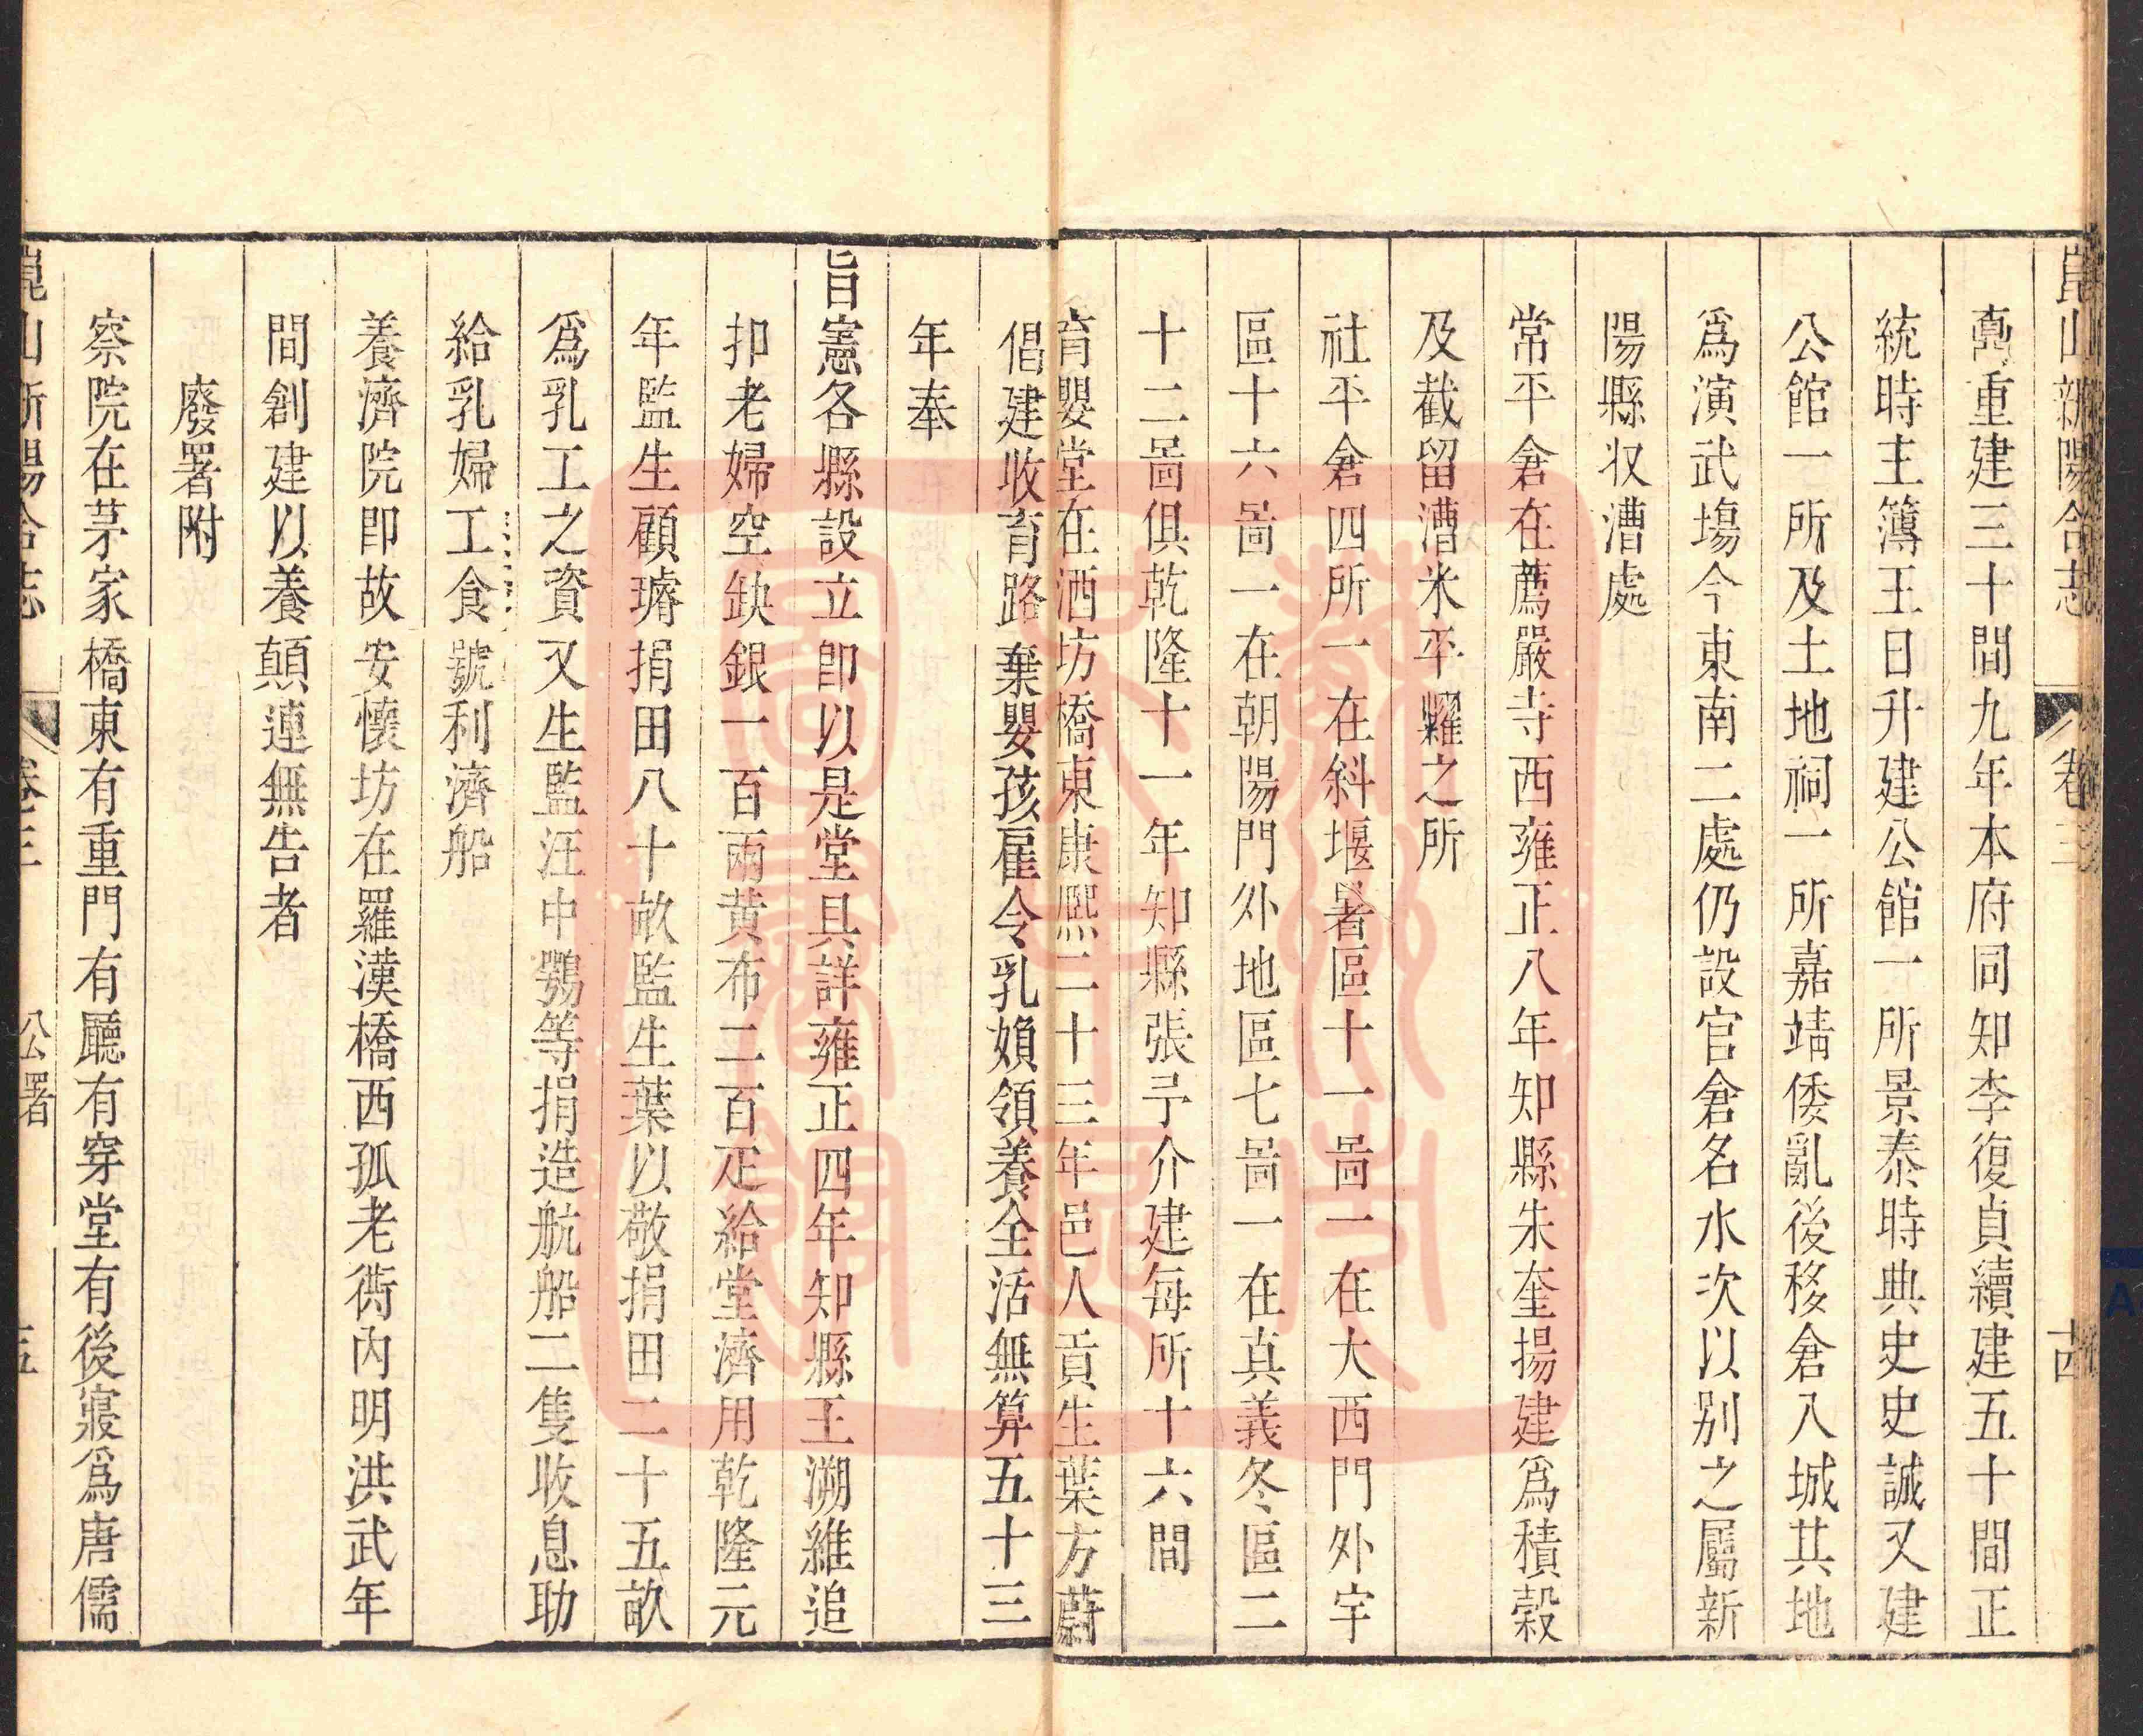 崑山新陽合志 卷三 十四
敻重建三十間九年本府同知李復貞續建五十間正
統時主簿王日升建公館一所景泰時典史史誠又建
公館一所及土地祠一所嘉靖倭亂後移倉入城其地
爲演武塲今東南二處仍設官倉名水次以别之屬新
陽縣収漕處
常平倉在薦嚴寺西雍正八年知縣朱奎揚建爲積穀
及截留漕米平糶之所
社平倉四所一在斜堰暑區十一啚一在大西門外宇
區十六啚一在朝陽門外地區七啚一在真義冬區二
十二啚俱乾隆十一年知縣張予介建每所十六間
育嬰堂在酒坊橋東康熙二十三年邑人貢生葉方蔚
倡建收育路棄嬰孩雇令乳媍領養全活無算五十三
年奉
旨憲各縣設立卽以是堂具詳雍正四年知縣王溯維追
扣老婦空缺銀一百兩黄布二百疋給堂濟用乾隆元
年監生顧璿捐田八十畝監生葉以敬捐田二十五畝
爲乳工之資又生監汪中鶚等捐造航船二隻收息助
給乳婦工食號利濟船
養濟院卽故安懷坊在羅漢橋西孤老衖內明洪武年
間創建以養顛連無告者
廢署附
察院在茅家橋東有重門有廳有穿堂有後寢爲唐儒
崑山新陽合志 卷三 公署 十五